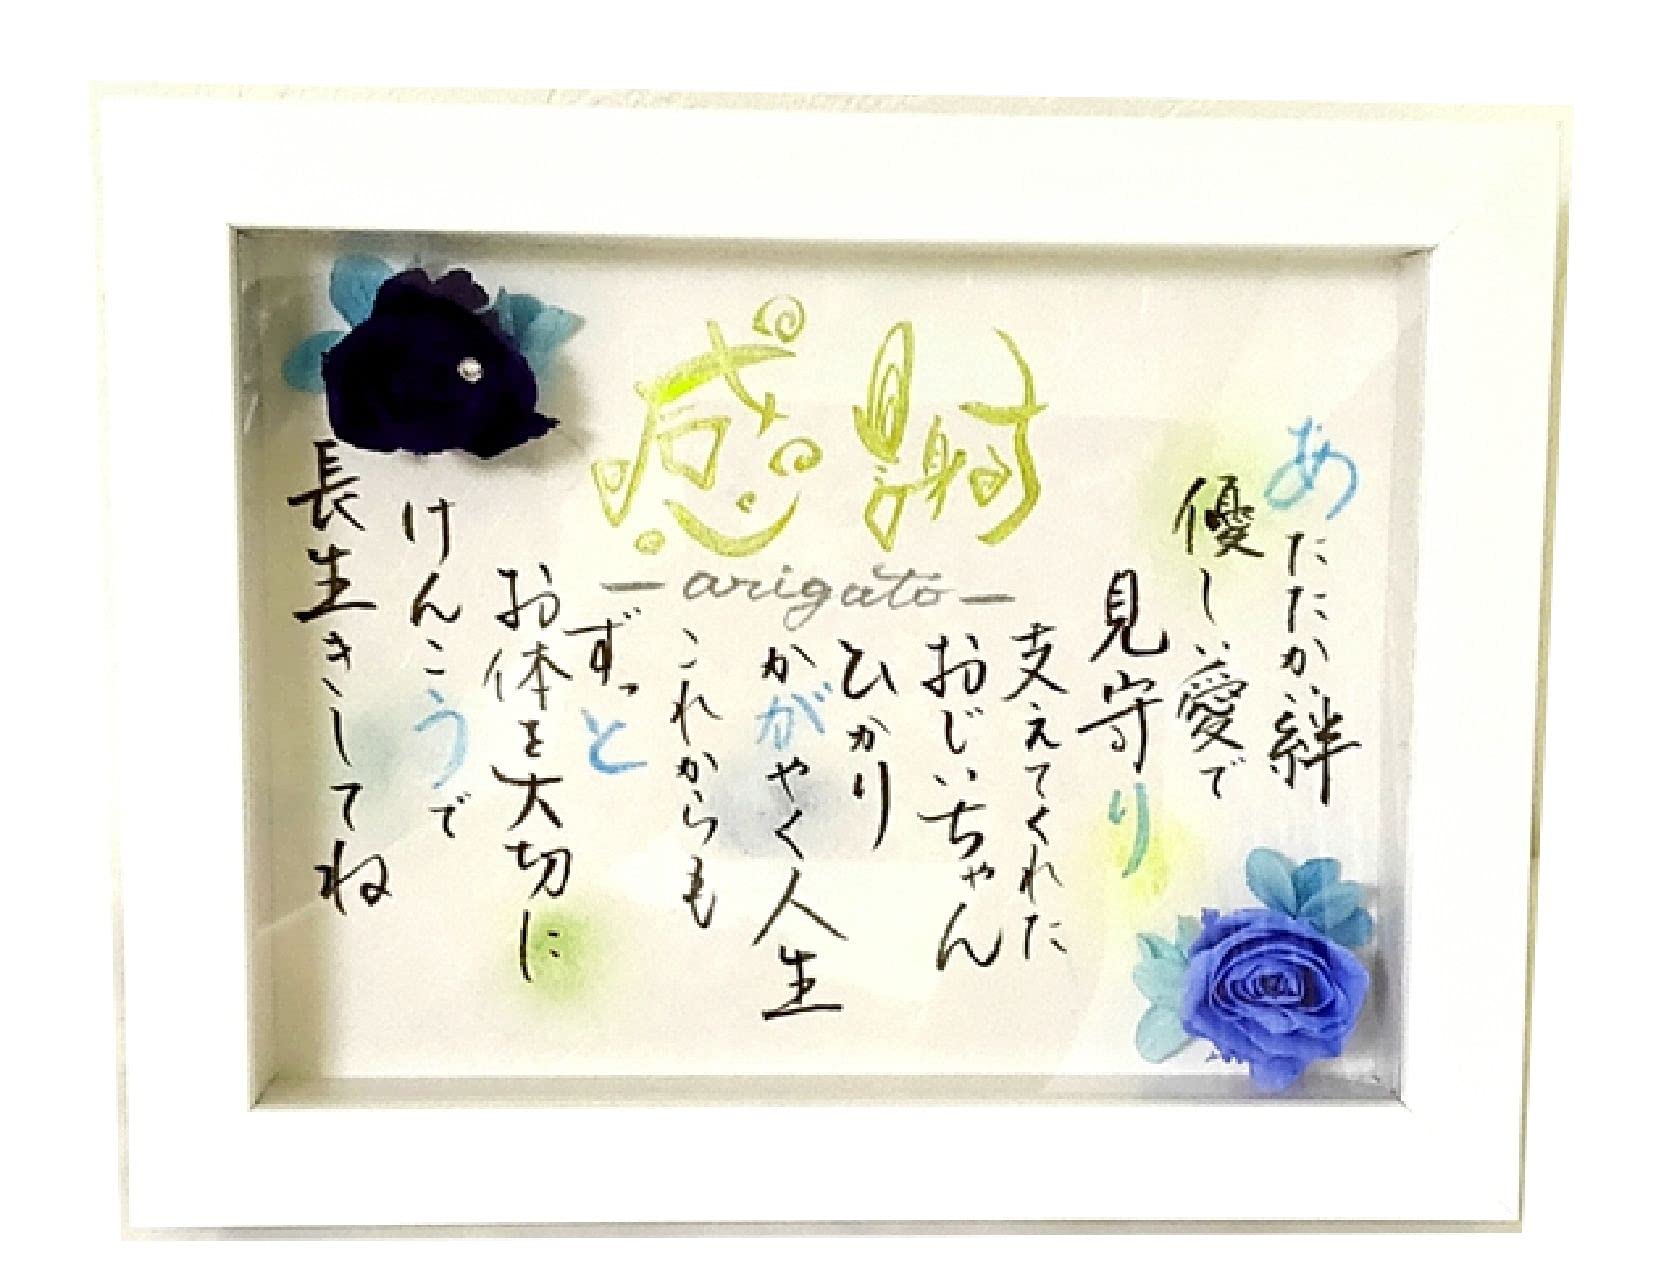 感謝
-arigato-
あたたか絆
優しい愛で
見守り
支えてくれた
おじいちゃん
ひかり
かがやく人生
これからも
ずっと
お体を大切に
けんこうで
長生きしてね